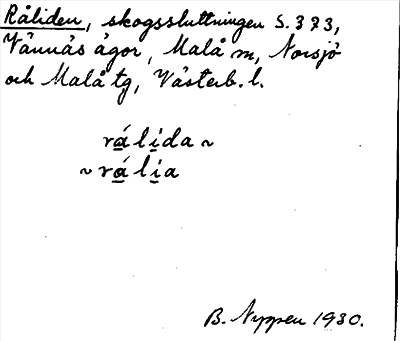 Råliden, skogssluttningen S. 373,
Vännäs ägor, Malå m, Norsjö
och Malå tg, Västerb. l.
rálida ~
~ rália
B. Nyppen 1930.